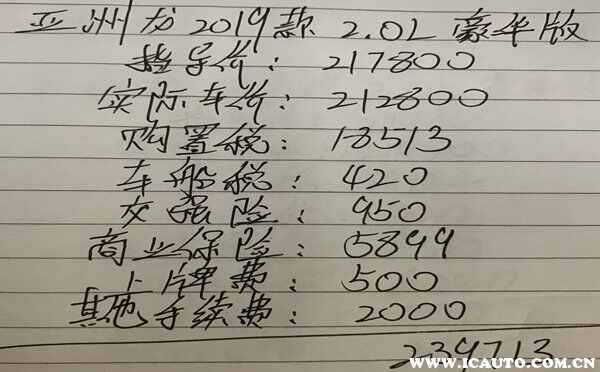 亚洲龙2019款 2.0L 豪华版
指导价：217800
实际车价：212800
购置税：18513
车船税：420
交强险：950
商业保险：5899
上牌费：500
其他手续费：2000
239713
WWW.ICAUTO.COM.CN